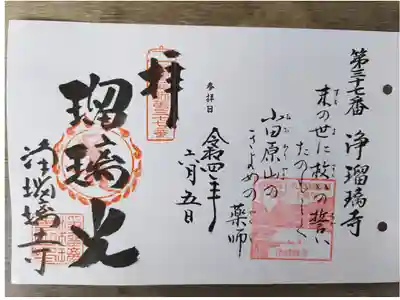 第三十七番 浄瑠璃寺
末の世に救の誓い
たのもしく
小田原山の
きよめの
薬師
参拝日
令和四年
六月五日
拝
瑠璃光
浄瑠璃寺